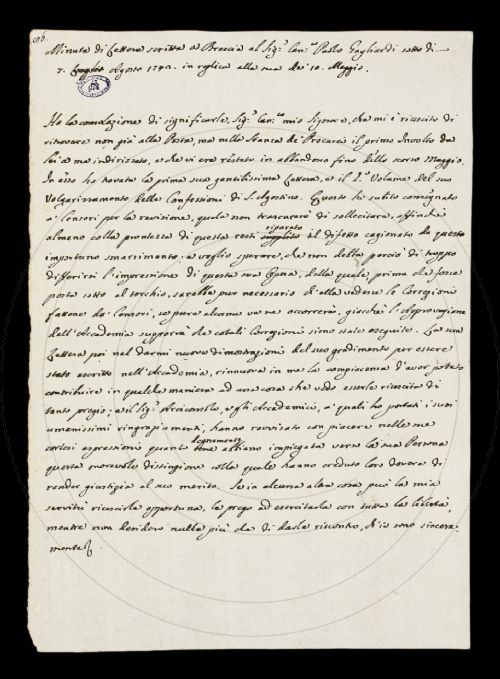 Minuta di Lettera scritta a Brescia al Sig.r Can.co Paolo Gagliardi sotto di
7. Agosto 1740. in replica alla sua de' 10. Maggio.
Ho la consolazione di significarle, Sig.r Can.co mio Signore, che mi è riuscito di
ritrovare non già alla Posta, ma nella Stanza de' Procacci il primo Involto da
lei a me indirizzato, e che vi era restato in abbandono fino dallo scorso Maggio.
In esso ho trovata la prima sua gentilissima Lettera, e il Volume del suo
Volgarizzamento delle Confessioni di S. Agostino. Questo ho subito consegnato
a' Censori per la revisione, quale non trascurerò di sollecitare, affinchè
almeno colla prontezza di questa resti riparato il difetto cagionato da questo
importuno smarrimento, e voglio sperare, che non debba perciò di troppo
differirsi l'impressione di questa sua Opera, della quale, prima che fosse
posta sotto al torchio, sarebbe pur necessario ch'ella vedesse le Correzioni
fattene da' Censori, se pure alcuna ve ne occorrerà, giacchè l'Approvazione
dell'Accademia supporrà che cotali Correzioni sieno state eseguite. La sua
Lettera poi nel darmi nuove dimostrazioni del suo gradimento per essere
stato ascritto nell'Accademia, rinnuova in me la compiacenza d'aver potuto
contribuire in qualche maniera ad una cosa che vedo esserle riuscita di
tanto pregio; e il Sig.r Arciconsolo, e gli Accademici, a' quali ho portati i suoi
umanissimi ringraziamenti, hanno ravvisato con piacere nelle sue
cortesi espressioni quanto degnamente abbiano impiegata verso la sua Persona
questa onorevole distinzione colla quale hanno creduto loro dovere di
render giustizia al suo merito. Se in alcuna altra cosa può la mia
servitù riuscirle opportuna, la prego ad esercitarla con tutta la libertà,
mentre non desidero nulla più che di darle riscontro, ch'io sono sincera-
mente